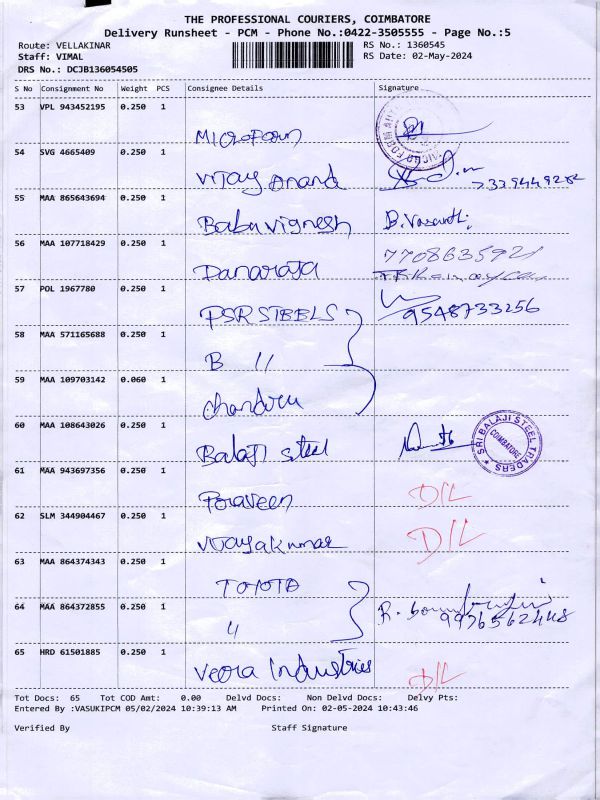 THE PROFESSIONAL COURIERS, COIMBATORE
Delivery Runsheet - PCM - Phone No.:0422-3505555 - Page No.:5
Route: VELLAKINAR RS No.: 1360545
Staff: VIMAL RS Date: 02-May-2024
DRS No.: DCJB136054505
S No Consignment No Weight PCS Consignee Details Signature
53 VPL 943452195 0.250 1
54 SVG 4665409 0.250 1
Vijay Anand
55 MAA 865643694 0.250 1
Babu vignesh B. Vasanthi
56 MAA 107718429 0.250 1
Danaraja 7708635921
57 POL 1967780 0.250 1
PSR STEELS 9548733256
58 MAA 571165688 0.250 1
B 〃
59 MAA 109703142 0.060 1
chandru
60 MAA 108643026 0.250 1
Balaji steel
SRI BALAJI STEEL TRADERS
COIMBATORE
61 MAA 943697356 0.250 1
Poraveen D/L
62 SLM 344904467 0.250 1
Vijayakumar D/L
63 MAA 864374343 0.250 1
TOYOTA
64 MAA 864372855 0.250 1
〃 9976562448
65 HRD 61501885 0.250 1
Veera Industries D/L
Tot Docs: 65 Tot COD Amt: 0.00 Delvd Docs: Non Delvd Docs: Delvy Pts:
Entered By :VASUKIPCM 05/02/2024 10:39:13 AM Printed On: 02-05-2024 10:43:46
Verified By Staff Signature